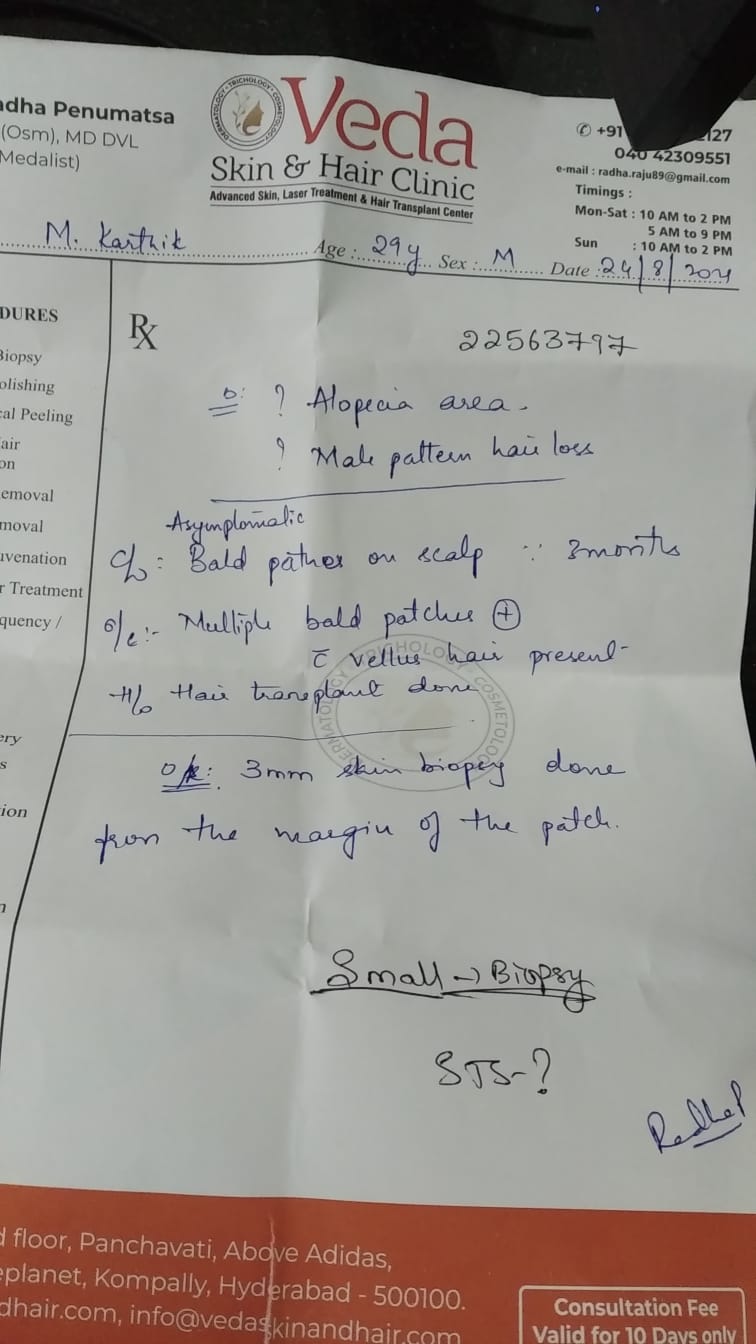 adha Penumatsa
(Osm), MD DVL
Medalist)
DERMATOLOGY • TRICHOLOGY • COSMETOLOGY
Veda
Skin & Hair Clinic
Advanced Skin, Laser Treatment & Hair Transplant Center
✆ +91 127
040 42309551
e-mail : radha.raju89@gmail.com
Timings :
Mon-Sat : 10 AM to 2 PM
5 AM to 9 PM
Sun : 10 AM to 2 PM
M. Karthik Age : 29y Sex : M Date : 24/8/2021
DURES
Biopsy
olishing
cal Peeling
air
on
emoval
moval
uvenation
r Treatment
quency /
ery
s
ion
n
Rx
22563797
D: ? Alopecia area.
? Male pattern hair loss
Asymplomatic
c/o: Bald patches on scalp ∵ 3months
o/e:- Multiple bald patches ⊕
c̄ vellus hair present
H/o Hair transplant done
DERMATOLOGY TRICHOLOGY COSMETOLOGY
3mm skin biopsy done
from the margin of the patch.
Small → Biopsy
STS-?
d floor, Panchavati, Above Adidas,
eplanet, Kompally, Hyderabad - 500100.
dhair.com, info@vedaskinandhair.com
Consultation Fee
Valid for 10 Days only